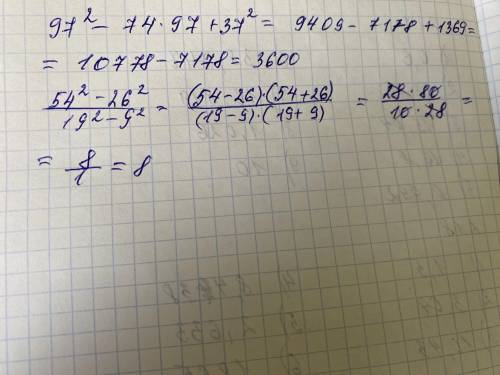 97² - 74·97 + 37² = 9409 - 7178 + 1369 =
= 10778 - 7178 = 3600
(54² - 26²)/(19² - 9²) = ((54-26)·(54+26))/((19-9)·(19+9)) = (28·80)/(10·28) =
= 8/1 = 8